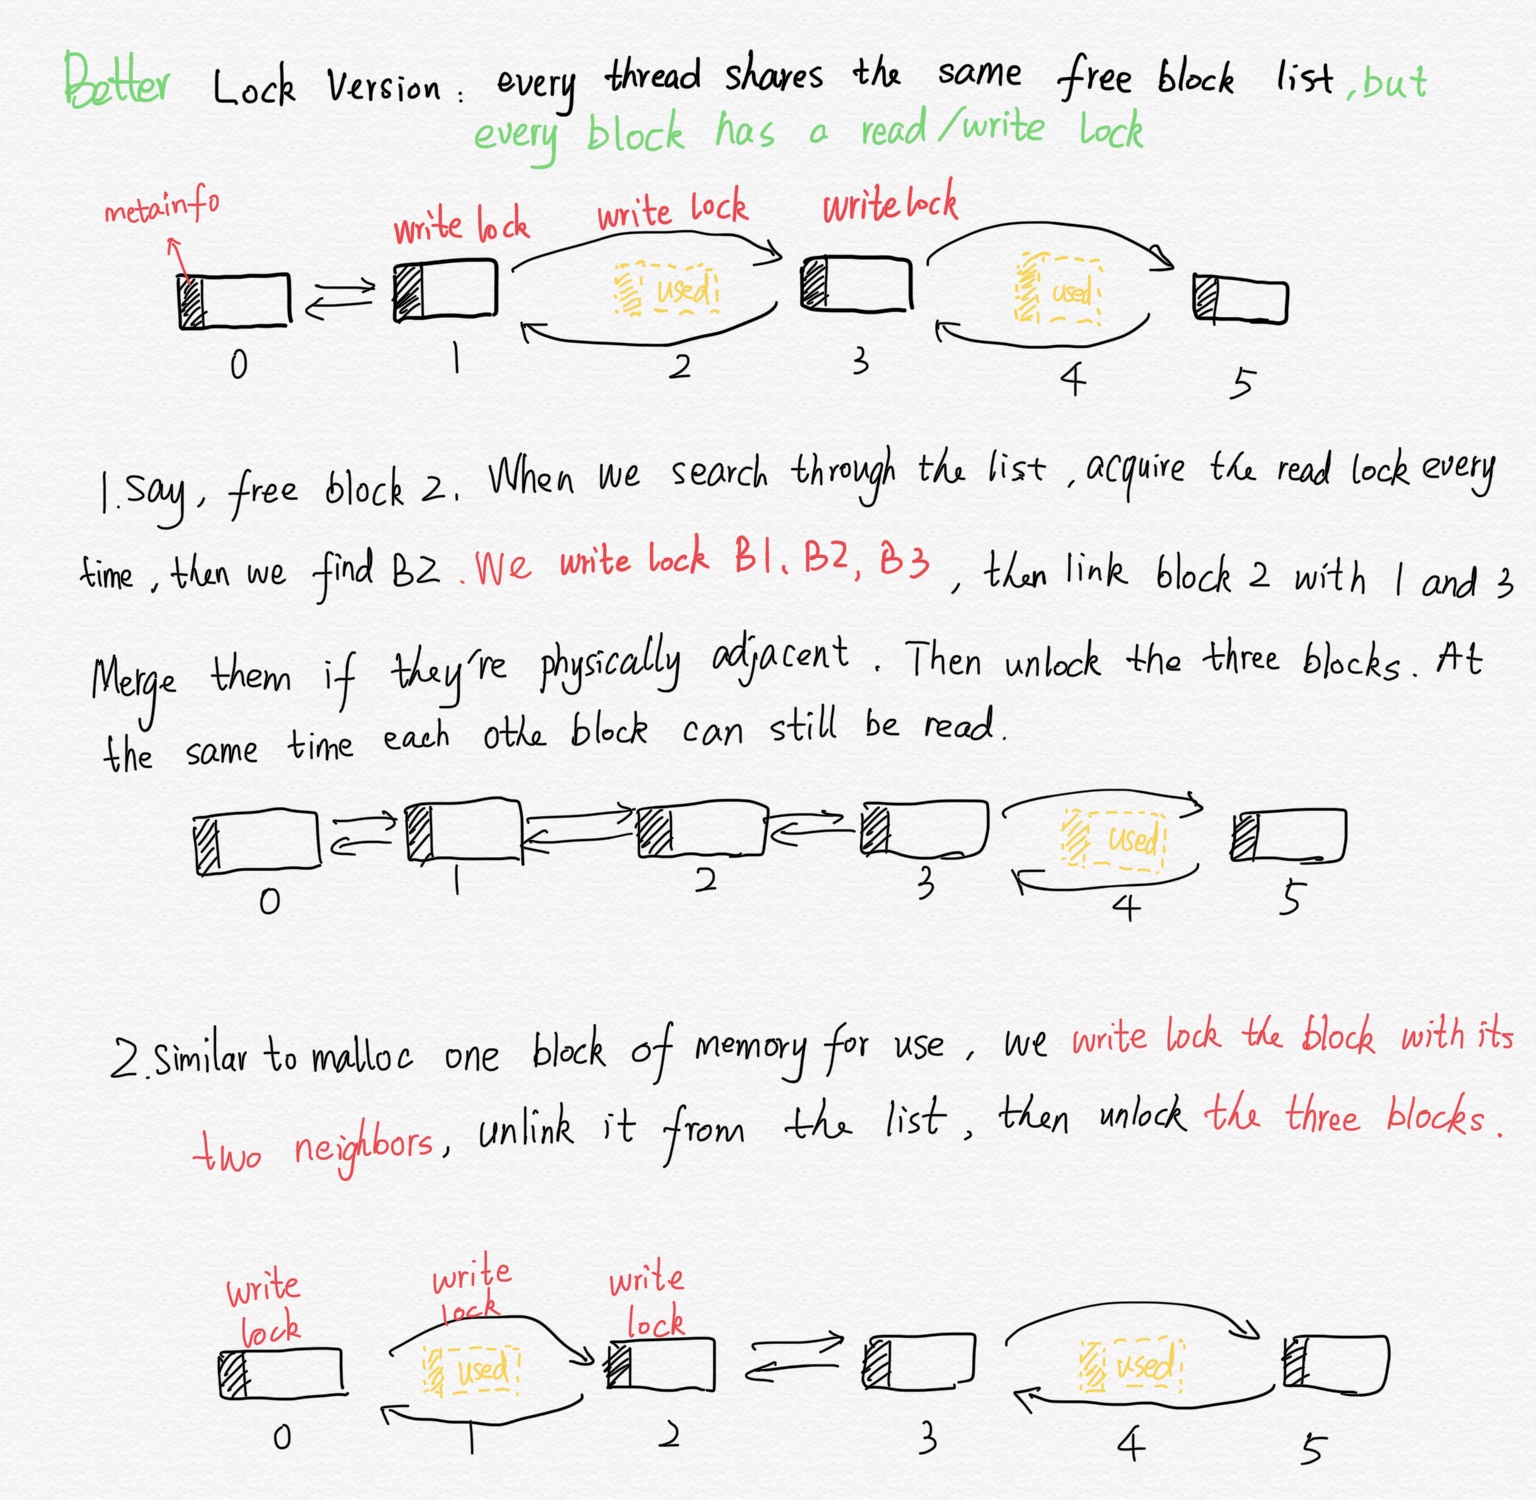 Better Lock Version: every thread shares the same free block list, but
every block has a read/write lock
metainfo
write lock write lock write lock
used used
0 1 2 3 4 5
1. Say, free block 2. When we search through the list, acquire the read lock every
time, then we find B2. We write lock B1, B2, B3, then link block 2 with 1 and 3
Merge them if they're physically adjacent. Then unlock the three blocks. At
the same time each othe block can still be read.
used
0 1 2 3 4 5
2. Similar to malloc one block of memory for use, we write lock the block with its
two neighbors, unlink it from the list, then unlock the three blocks.
write write write
lock lock lock
used used
0 1 2 3 4 5